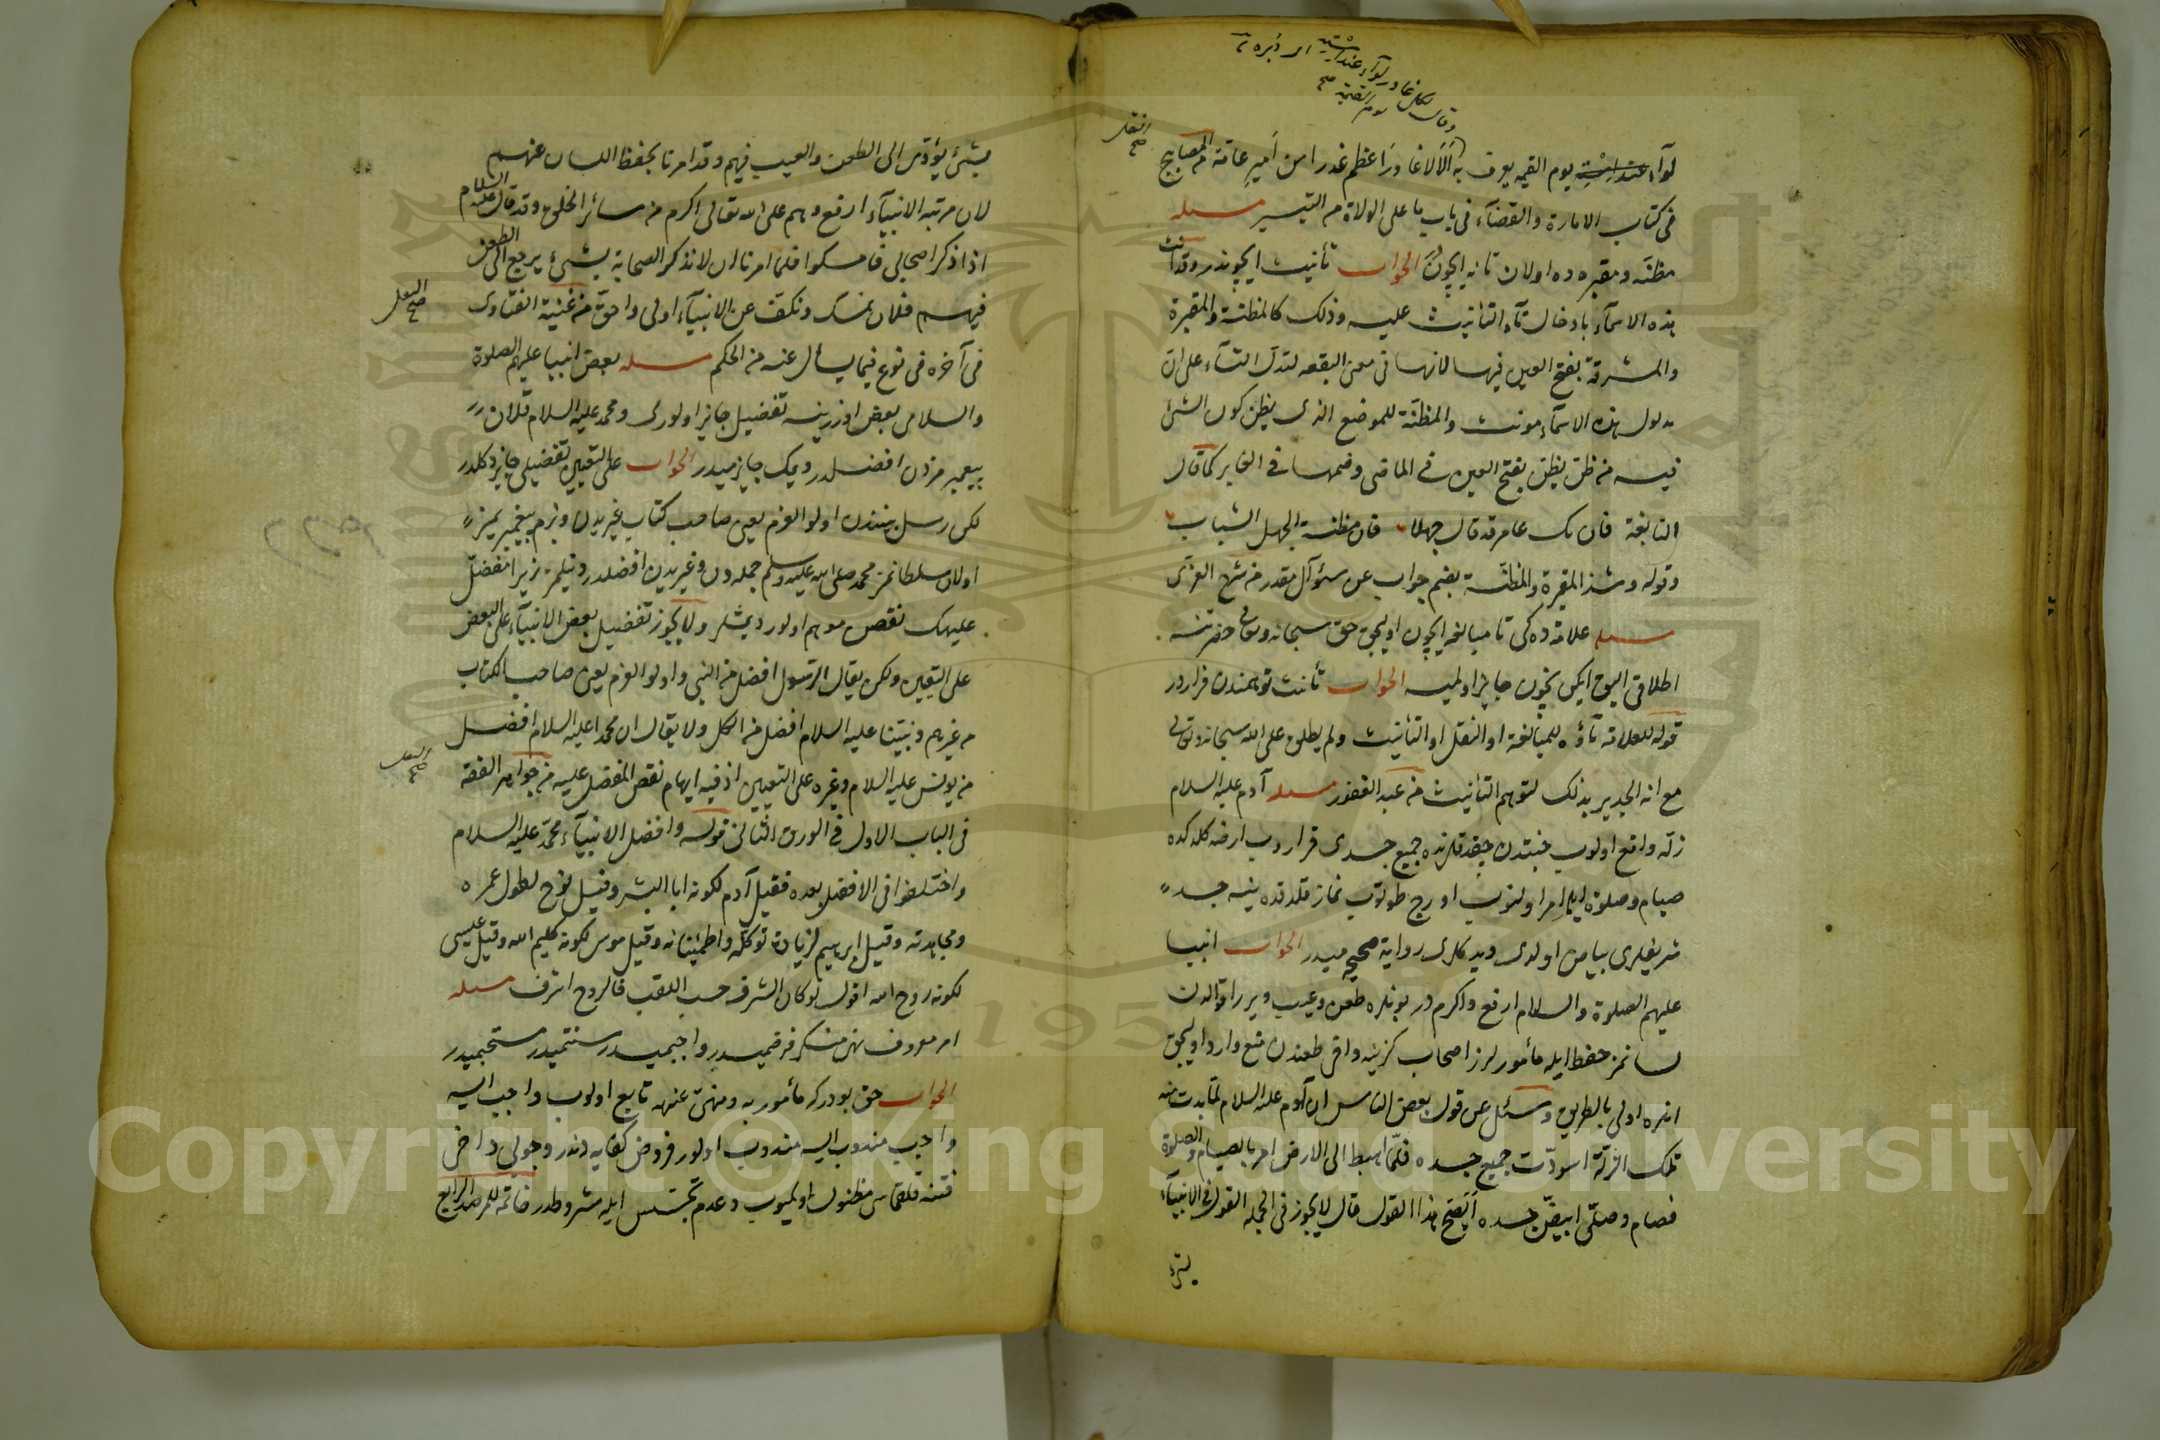 وقال لكل غادر لواء عند استه
يوم القيمة صح
لوآء عند استه يوم القيمه يعرف به ألا لا غادر اعظم غدرا من أمير عامة من المصابيح
فى كتاب الامارة والقضآء فى باب ما على الولاة من التيسير مسئله
مظنه ومقبره ده اولان تا نه ايچون الجواب تأنيث ايچوندر وقد انث
هذه الاسمآء بادخال تآء التأنيث عليه وذلك كالمظنة والمقبرة
والمشرقة بفتح العين فيها لانها فى معنى البقعه لتدل التآء على ان
مدلول هذه الاسمآء مونث والمظنة للموضع الذى يظن كون الشئ
فيه من ظن يظن بفتح العين فى الماضى وضمها فى الغابر كما قال
النابغة فان يك عامر قد قال جهلا فان مظنة الجهل الشباب
وقوله وشذ المقبرة والمظنة بضم جواب عن سؤال مقدر من شرح العزى
مسئله علامه ده كى تا مبالغه ايچون اوليجق حق سبحانه وتعالى حضرتنه
اطلاقى اليق ايكن نيچون جايز اولميه الجواب تأنيث توهمندن فراردر
قوله للعلامة تآؤه للمبالغة او النقل او التأنيث ولم يطلق على الله سبحانه وتعالى
مع انه الجدير بذلك لتوهم التأنيث من عبد الغفور مسئله آدم عليه السلام
زله واقع اولوب جنتدن چيقدقلرنده جميع جسدى قراروب ارضه كلدكده
صيام وصلوة ايله امر اولنوب اورج طوتوب نماز قلدقده ينه جسد
شريفلرى بياض اولدى ديدكلرى رواية صحيحه ميدر الجواب انبيا
عليهم الصلوة والسلام ارفع واكرم در بونلره طعن وعيب ويرر اقوالدن
لسانمز حفظ ايله مأمورلرز اصحاب كزينه واقع طعندن منع وارد اوليجق
انلره اولى بالطريق وسئل عن قول بعض الناس ان آدم عليه السلام لما بدت منه
تلك الزلة اسودت جميع جسده فلما اهبط الى الارض امر بالصيام والصلوة
فصام وصلى ابيض جسده أيصح هذا القول قال لا يجوز فى الجملة القول فى الانبيآء
بشئ يؤدى الى الطعن والعيب فيهم وقد امرنا بحفظ اللسان عنهم
لان مرتبة الانبيآء ارفع وهم على الله تعالى اكرم من سائر الخلق وقد قال عليه السلام
اذا ذكر اصحابى فامسكوا فلما امرنا ان لا نذكر الصحابة بشئ يرجع الى الطعن
فيهم فلان نمسك ونكف عن الانبيآء اولى واحق من غنية الفتاوى
فى آخره فى نوع فيما يسأل عنه من الحكم مسئله بعض انبيا عليهم الصلوة
والسلامى بعض اوزرينه تفضيل جايز اولورمى ومحمد عليه السلام فلان
پيغمبرمزدن افضلدر ديمك جايزميدر الجواب على التعيين تفضيلى جايز دكلدر
لكن رسل بيننده اولو العزم يعنى صاحب كتاب غيريدن وبزم پيغمبريمز
اولان سلطانمز محمد صلى الله عليه وسلم جمله دن وغيريدن افضلدر دنيلمز زيرا مفضل
عليهك نقصن موهم اولور ديمشلر ولا يجوز تفضيل بعض الانبيآء على البعض
على التعيين ولكن يقال الرسول افضل من النبى واولو العزم يعنى صاحب الكتاب
من غيرهم ونبينا عليه السلام افضل من الكل ولا يقال ان محمدا عليه السلام افضل
من يونس عليه السلام وغيره على التعيين اذ فيه ايهام نقص المفضل عليه من جواهر الفقه
فى الباب الاول فى الورق الثانى قوله وافضل الانبيآء محمد عليه السلام
واختلفوا فى الافضل بعده فقيل آدم لكونه ابا البشر وقيل نوح لطول عمره
ومجاهدته وقيل ابرهيم لزيادة توكله واطمئنانه وقيل موسى لكونه كليم الله وقيل عيسى
لكونه روح الله اقول لو كان الشرف حسب اللقب فالروح اشرف مسئله
امر معروف نهى منكر فرضميدر واجبميدر سنتميدر مستحبميدر
الجواب حق بودر كه مأمور به ومنهى عنهه تابع اولوب واجب ايسه
واجب مندوب ايسه مندوب اولور فروض كفايه دندر وجوبى داخى
فتنه قلقماسى مظنون اولميوب وعدم تجسس ايله مشروطدر خاتمة للمرصد الرابع
Copyright © King Saud University
195